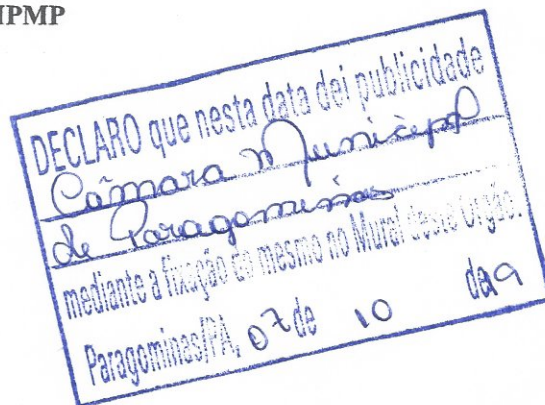 IPMP
DECLARO que nesta data dei publicidade
Câmara Municipal
de Paragominas
mediante a fixação do mesmo no Mural deste Orgão.
Paragominas/PA, 07 de 10 de 19